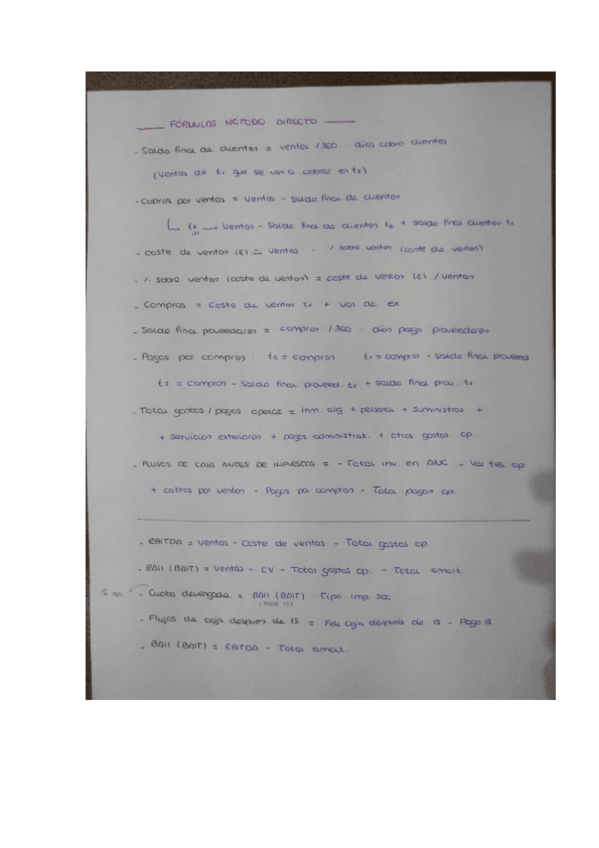 FÓRMULAS MÉTODO DIRECTO
. Saldo final de clientes = ventas / 360 . días cobro clientes
(ventas de t1 que se van a cobrar en t2)
. Cobros por ventas = Ventas - Saldo final de clientes
t2 → Ventas - Saldo final de clientes t2 + saldo final clientes t1
- Coste de ventas (€) = Ventas . % sobre ventas (coste de ventas)
. % sobre ventas (coste de ventas) = coste de ventas (€) / ventas
- Compras = Coste de ventas t1 + var de ex
- Saldo final proveedores = compras / 360 . días pago proveedores
- Pagos por compras . t0 = compras t1 = compras - saldo final proveed.
t2 = compras - Saldo final proveed. t2 + saldo final prov. t1
. Total gastos / pagos operat = Inm. alq + personal + suministros +
+ servicios exteriores + pagos administrat. + otros gastos op.
. FLUJOS DE CAJA ANTES DE IMPUESTOS = - Total inv. en ANC - Var tes. op
+ cobros por ventas - Pagos por compras - Total pagos op.
. EBITDA = Ventas - Coste de ventas - Total gastos op.
. BAII (BAIT) = Ventas - CV - Total gastos op. - Total amort.
- Cuota devengada = BAII (BAIT) . Tipo imp. soc
. Flujos de caja despues de IS = F de caja después de IS - Pago IS
. BAII (BAIT) = EBITDA - Total amort.